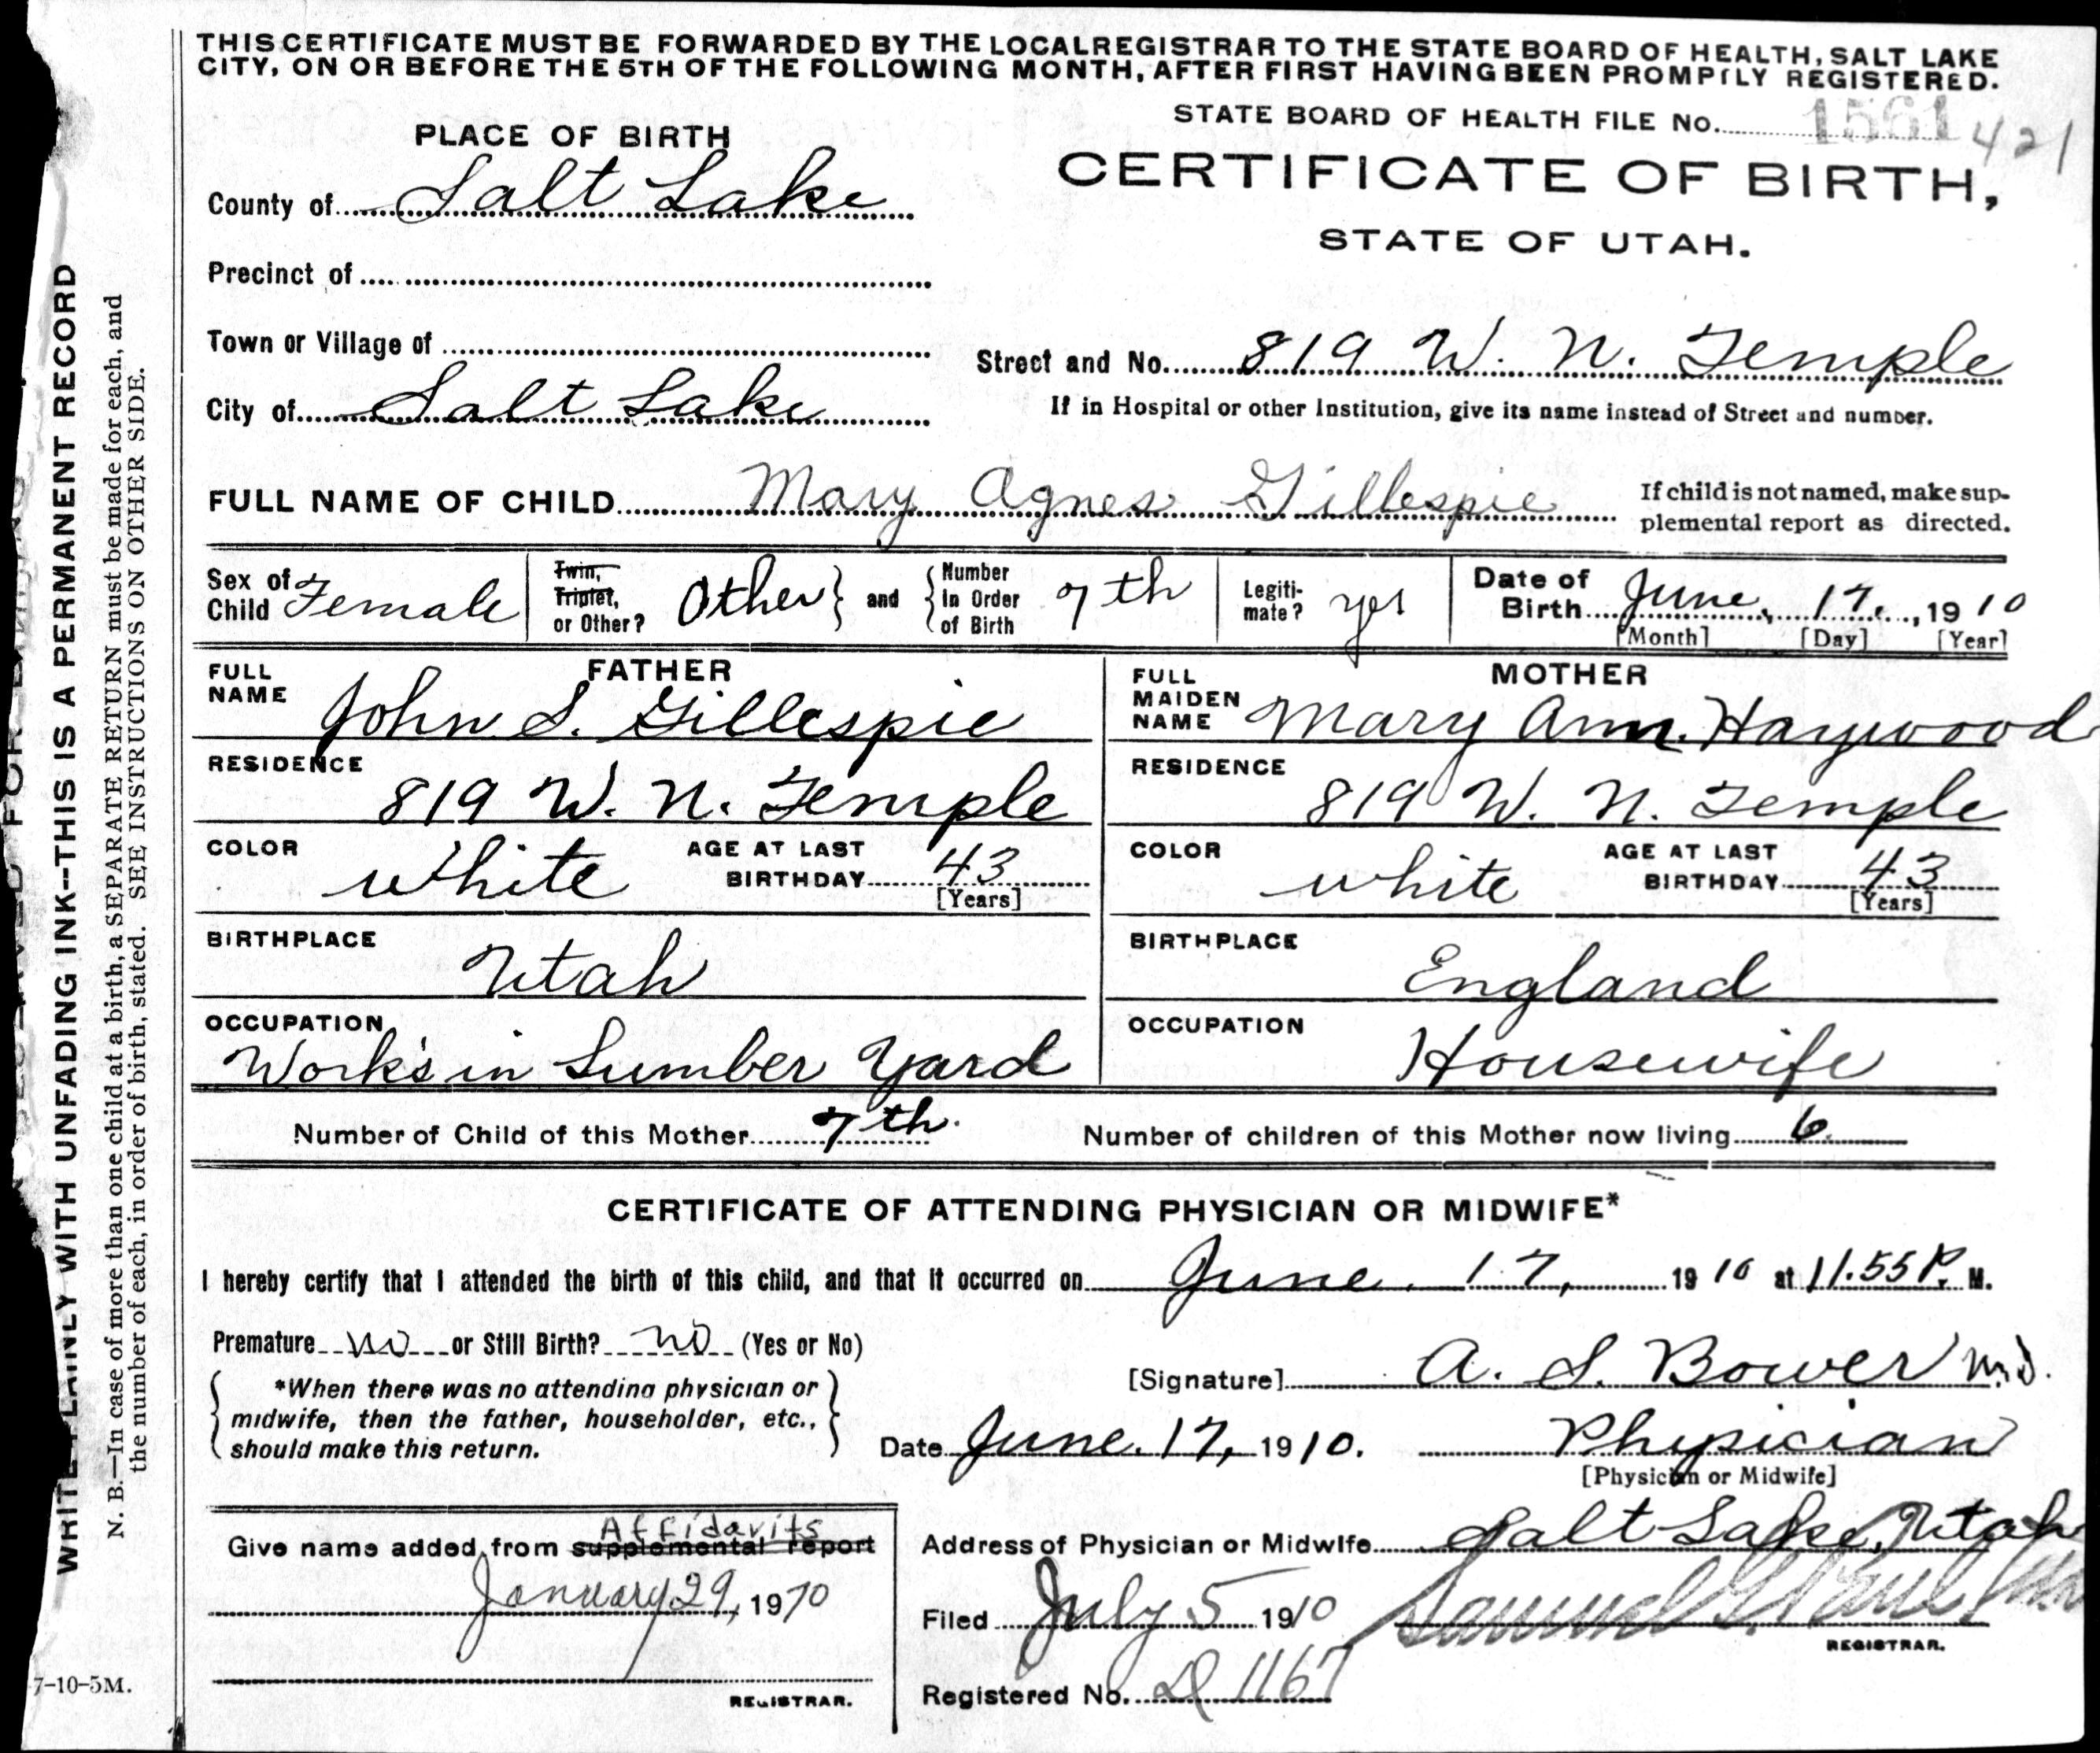 THIS CERTIFICATE MUST BE FORWARDED BY THE LOCAL REGISTRAR TO THE STATE BOARD OF HEALTH, SALT LAKE
CITY, ON OR BEFORE THE 5TH OF THE FOLLOWING MONTH, AFTER FIRST HAVING BEEN PROMPTLY REGISTERED.
STATE BOARD OF HEALTH FILE No. 1561 421
PLACE OF BIRTH
CERTIFICATE OF BIRTH,
STATE OF UTAH.
County of Salt Lake
Precinct of
Town or Village of
Street and No. 819 W. N. Temple
City of Salt Lake
If in Hospital or other Institution, give its name instead of Street and number.
FULL NAME OF CHILD Mary Agnes Gillespie
If child is not named, make sup-
plemental report as directed.
Sex of Child Female
Twin, Triplet, or Other? Other and Number In Order of Birth 7th
Legiti-mate? yes
Date of Birth June, 17, 1910
[Month] [Day] [Year]
FATHER
FULL NAME John S. Gillespie
MOTHER
FULL MAIDEN NAME Mary Ann Haywood
RESIDENCE 819 W. N. Temple
RESIDENCE 819 W. N. Temple
COLOR white AGE AT LAST BIRTHDAY 43 [Years]
COLOR white AGE AT LAST BIRTHDAY 43 [Years]
BIRTHPLACE Utah
BIRTHPLACE England
OCCUPATION Work's in Lumber Yard
OCCUPATION Housewife
Number of Child of this Mother 7th. Number of children of this Mother now living 6
CERTIFICATE OF ATTENDING PHYSICIAN OR MIDWIFE*
I hereby certify that I attended the birth of this child, and that it occurred on June 17, 1910 at 11.55 P. M.
Premature no or Still Birth? no (Yes or No)
*When there was no attending physician or
midwife, then the father, householder, etc.,
should make this return.
[Signature] A. S. Bower M.D.
Date June. 17, 1910. Physician
[Physician or Midwife]
Give name added from supplemental report Affidavits
January 29, 1970
REGISTRAR.
Address of Physician or Midwife Salt Lake, Utah
Filed July 5 1910 Samuel G. Paul
REGISTRAR.
Registered No. D 1167
7-10-5M.
WRITE PLAINLY WITH UNFADING INK--THIS IS A PERMANENT RECORD
N. B.—In case of more than one child at a birth, a SEPARATE RETURN must be made for each, and
the number of each, in order of birth, stated. SEE INSTRUCTIONS ON OTHER SIDE.